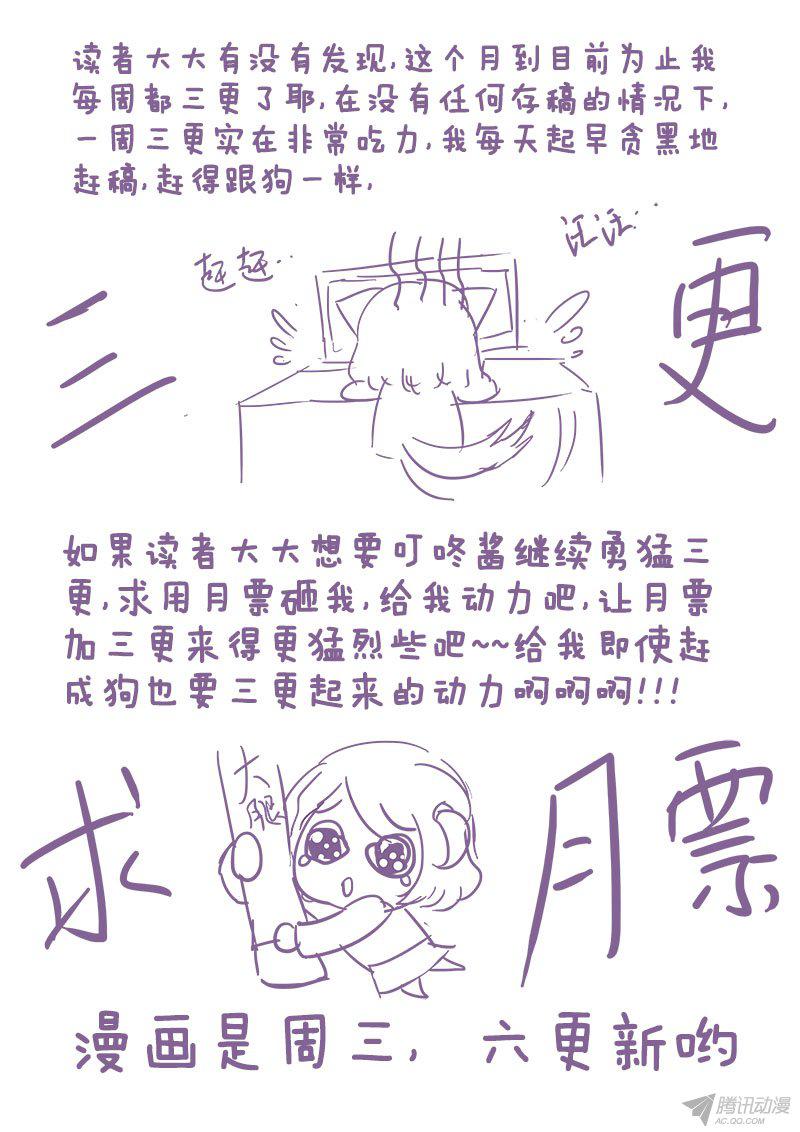 读者大大有没有发现,这个月到目前为止我
每周都三更了耶,在没有任何存稿的情况下,
一周三更实在非常吃力,我每天起早贪黑地
赶稿,赶得跟狗一样,
赶赶..
汪汪...
三更
如果读者大大想要叮咚酱继续勇猛三
更,求用月票砸我,给我动力吧,让月票
加三更来得更猛烈些吧~~给我即使赶
成狗也要三更起来的动力啊啊啊!!!
大腿
求月票
漫画是周三,六更新哟
腾讯动漫
AC.QQ.COM